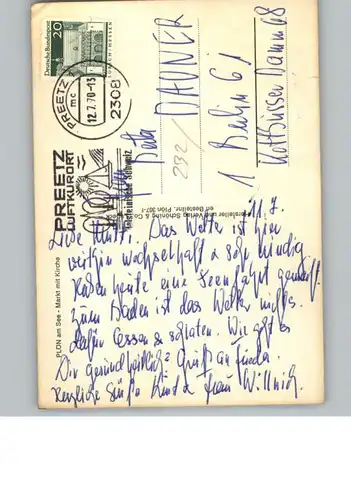 Deutsche Bundespost
20
LORSCH · HESSEN
PREETZ
mc
12.7.70-13
2308
PREETZ
LUFTKURORT
Holsteinische Schweiz
Hersteller und Verlag Schöning & Co
Bestellnr. Plön
PLÖN am See - Markt mit Kirche
DAUNER
232/
1 Berlin 61
Kottbusser Damm 68
11.7.
Liebe Mutti. Das Wetter ist hier
wechselhaft & sehr windig
Haben heute eine Seenfahrt gemacht.
Zum Baden ist das Wetter nichts.
dafür essen & schlafen. Wie geht es
Dir gesundheitlich? Gruß an
Herzliche Grüße